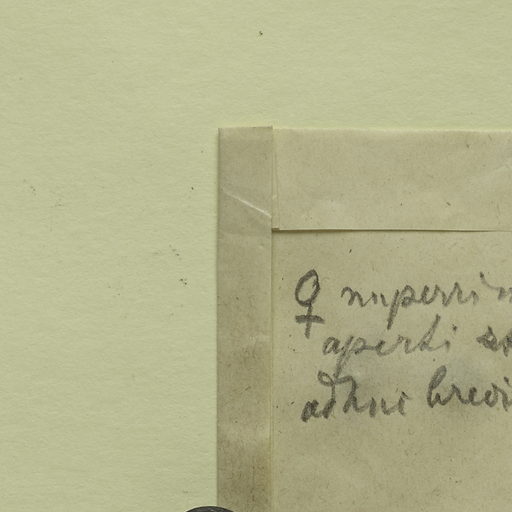 ♀ nuperrim
aperti st
adhuc brevi